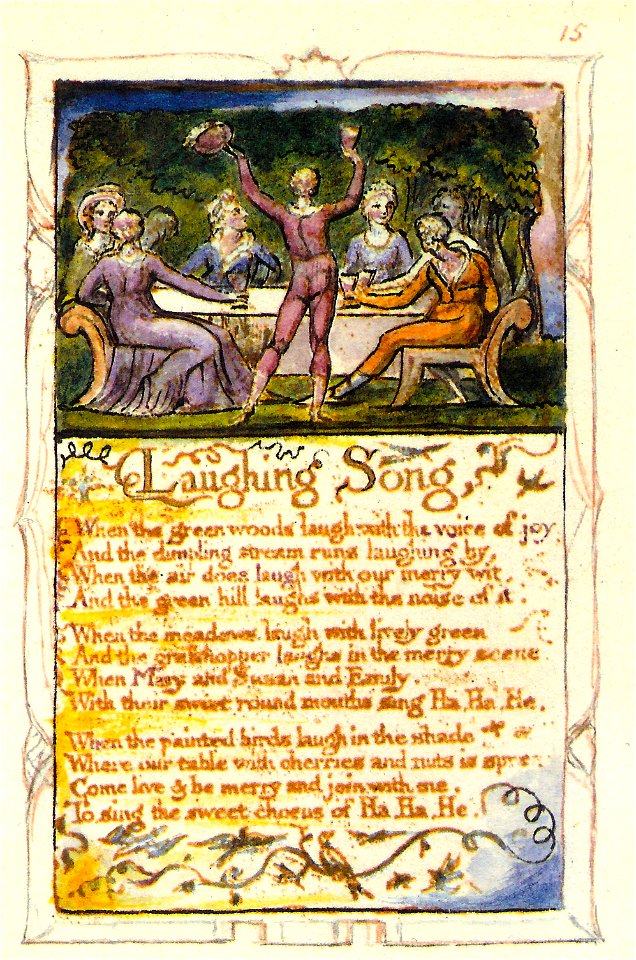 15
Laughing Song,
When the green woods laugh with the voice of joy
And the dimpling stream runs laughing by,
When the air does laugh with our merry wit,
And the green hill laughs with the noise of it.
When the meadows laugh with lively green
And the grasshopper laughs in the merry scene
When Mary and Susan and Emily,
With their sweet round mouths sing Ha, Ha, He.
When the painted birds laugh in the shade
Where our table with cherries and nuts is spread
Come live & be merry and join with me,
To sing the sweet chorus of Ha, Ha, He.